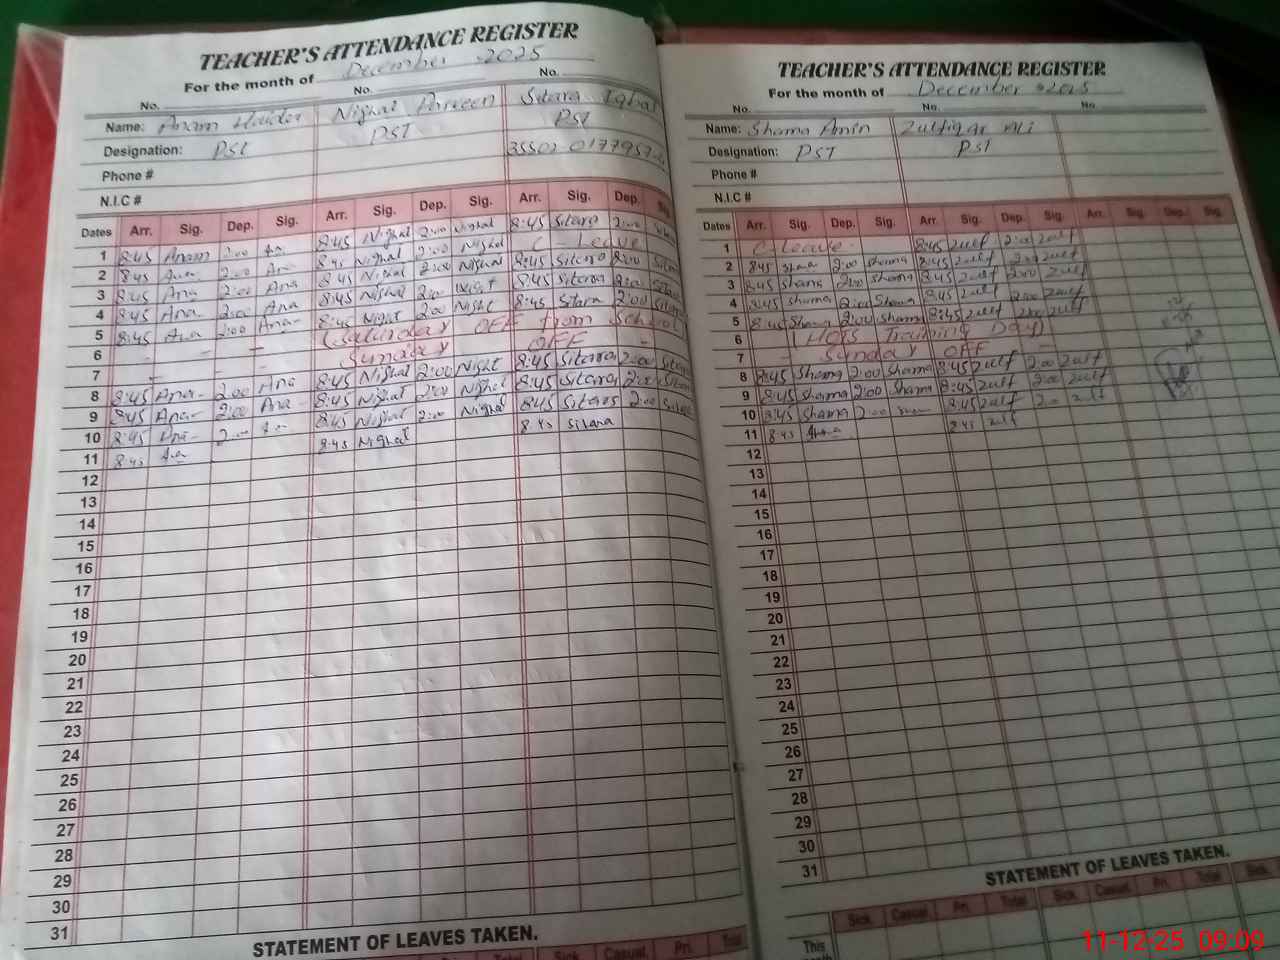 TEACHER'S ATTENDANCE REGISTER
For the month of December 2025
No. No. No.
Name: Anam Haider Nighat Parveen Sitara Iqbal
Designation: PST PST PST
Phone #
N.I.C #
Dates Arr. Sig. Dep. Sig. Arr. Sig. Dep. Sig. Arr. Sig. Dep. Sig.
1 8:45 Anam 2:00 8:45 Nighat 2:00 Nighat 8:45 Sitara 2:00
2 8:45 Ana 2:00 Ana 8:45 Nighat 2:00 Nighat C - Leave
3 8:45 Ana 2:00 Ana 8:45 Nighat 2:00 Nighat 8:45 Sitara 2:00
4 8:45 Ana 2:00 Ana 8:45 Nighat 2:00 Night 8:45 Sitara 2:00
5 8:45 Ana 2:00 Ana 8:45 Night 2:00 Night 8:45 Sitara 2:00
6 - - - (Saturday OFF from School)
7 - - - Sunday OFF -
8 8:45 Ana 2:00 Ana 8:45 Nighat 2:00 Night 8:45 Sitara 2:00 Sitara
9 8:45 Ana 2:00 Ana 8:45 Nighat 2:00 Nighat 8:45 Sitara 2:00
10 8:45 Ana 2:00 8:45 Nighat 2:00 Nighat 8:45 Sitara 2:00
11 8:45 8:45 Nighat 8:45 Sitara
12
13
14
15
16
17
18
19
20
21
22
23
24
25
26
27
28
29
30
31
STATEMENT OF LEAVES TAKEN.
Sick Casual. Pri. Total
TEACHER'S ATTENDANCE REGISTER
For the month of December 2025
No. No. No.
Name: Shama Amin Zulfiqar Ali
Designation: PST PST
Phone #
N.I.C #
Dates Arr. Sig. Dep. Sig. Arr. Sig. Dep. Sig. Arr. Sig. Dep. Sig.
1 C-Leave 8:45 Zulf 2:00 Zulf
2 8:45 Shama 2:00 Shama 8:45 Zulf 2:00 Zulf
3 8:45 Shama 2:00 Shama 8:45 Zulf 2:00 Zulf
4 8:45 Shama 2:00 Shama 8:45 Zulf 2:00 Zulf
5 8:45 Shama 2:00 Shama 8:45 Zulf 2:00 Zulf
6 (HOTS Training Day)
7 - Sunday OFF -
8 8:45 Shama 2:00 Shama 8:45 Zulf 2:00 Zulf
9 8:45 Shama 2:00 Shama 8:45 Zulf 2:00 Zulf
10 8:45 Shama 2:00 8:45 Zulf 2:00 Zulf
11 8:45 Shama 8:45 Zulf
12
13
14
15
16
17
18
19
20
21
22
23
24
25
26
27
28
29
30
31
STATEMENT OF LEAVES TAKEN.
Sick Casual Pri. Total Sick Casual Pri. Total Sick
This
11-12-25 09:09